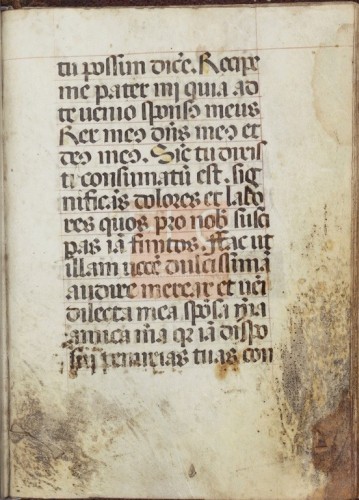 tu possim dice̅. Recipe
me pater mi quia ad
te uenio sponsꝰ meus
Rex meꝰ dn̅s meꝰ et
deꝰ meꝰ. Sic̅ tu dixis
ti consumatu̅ est. sig
nifica̅s dolores et labo
res quos pro nob̅ susce
pas ia̅ finitos. ffac ut
illam uoce̅ dulcissima̅
audire merear et ueni
dilecta mea spo̅sa m̅a
amica m̅a qr ia̅ dispo
tuas con